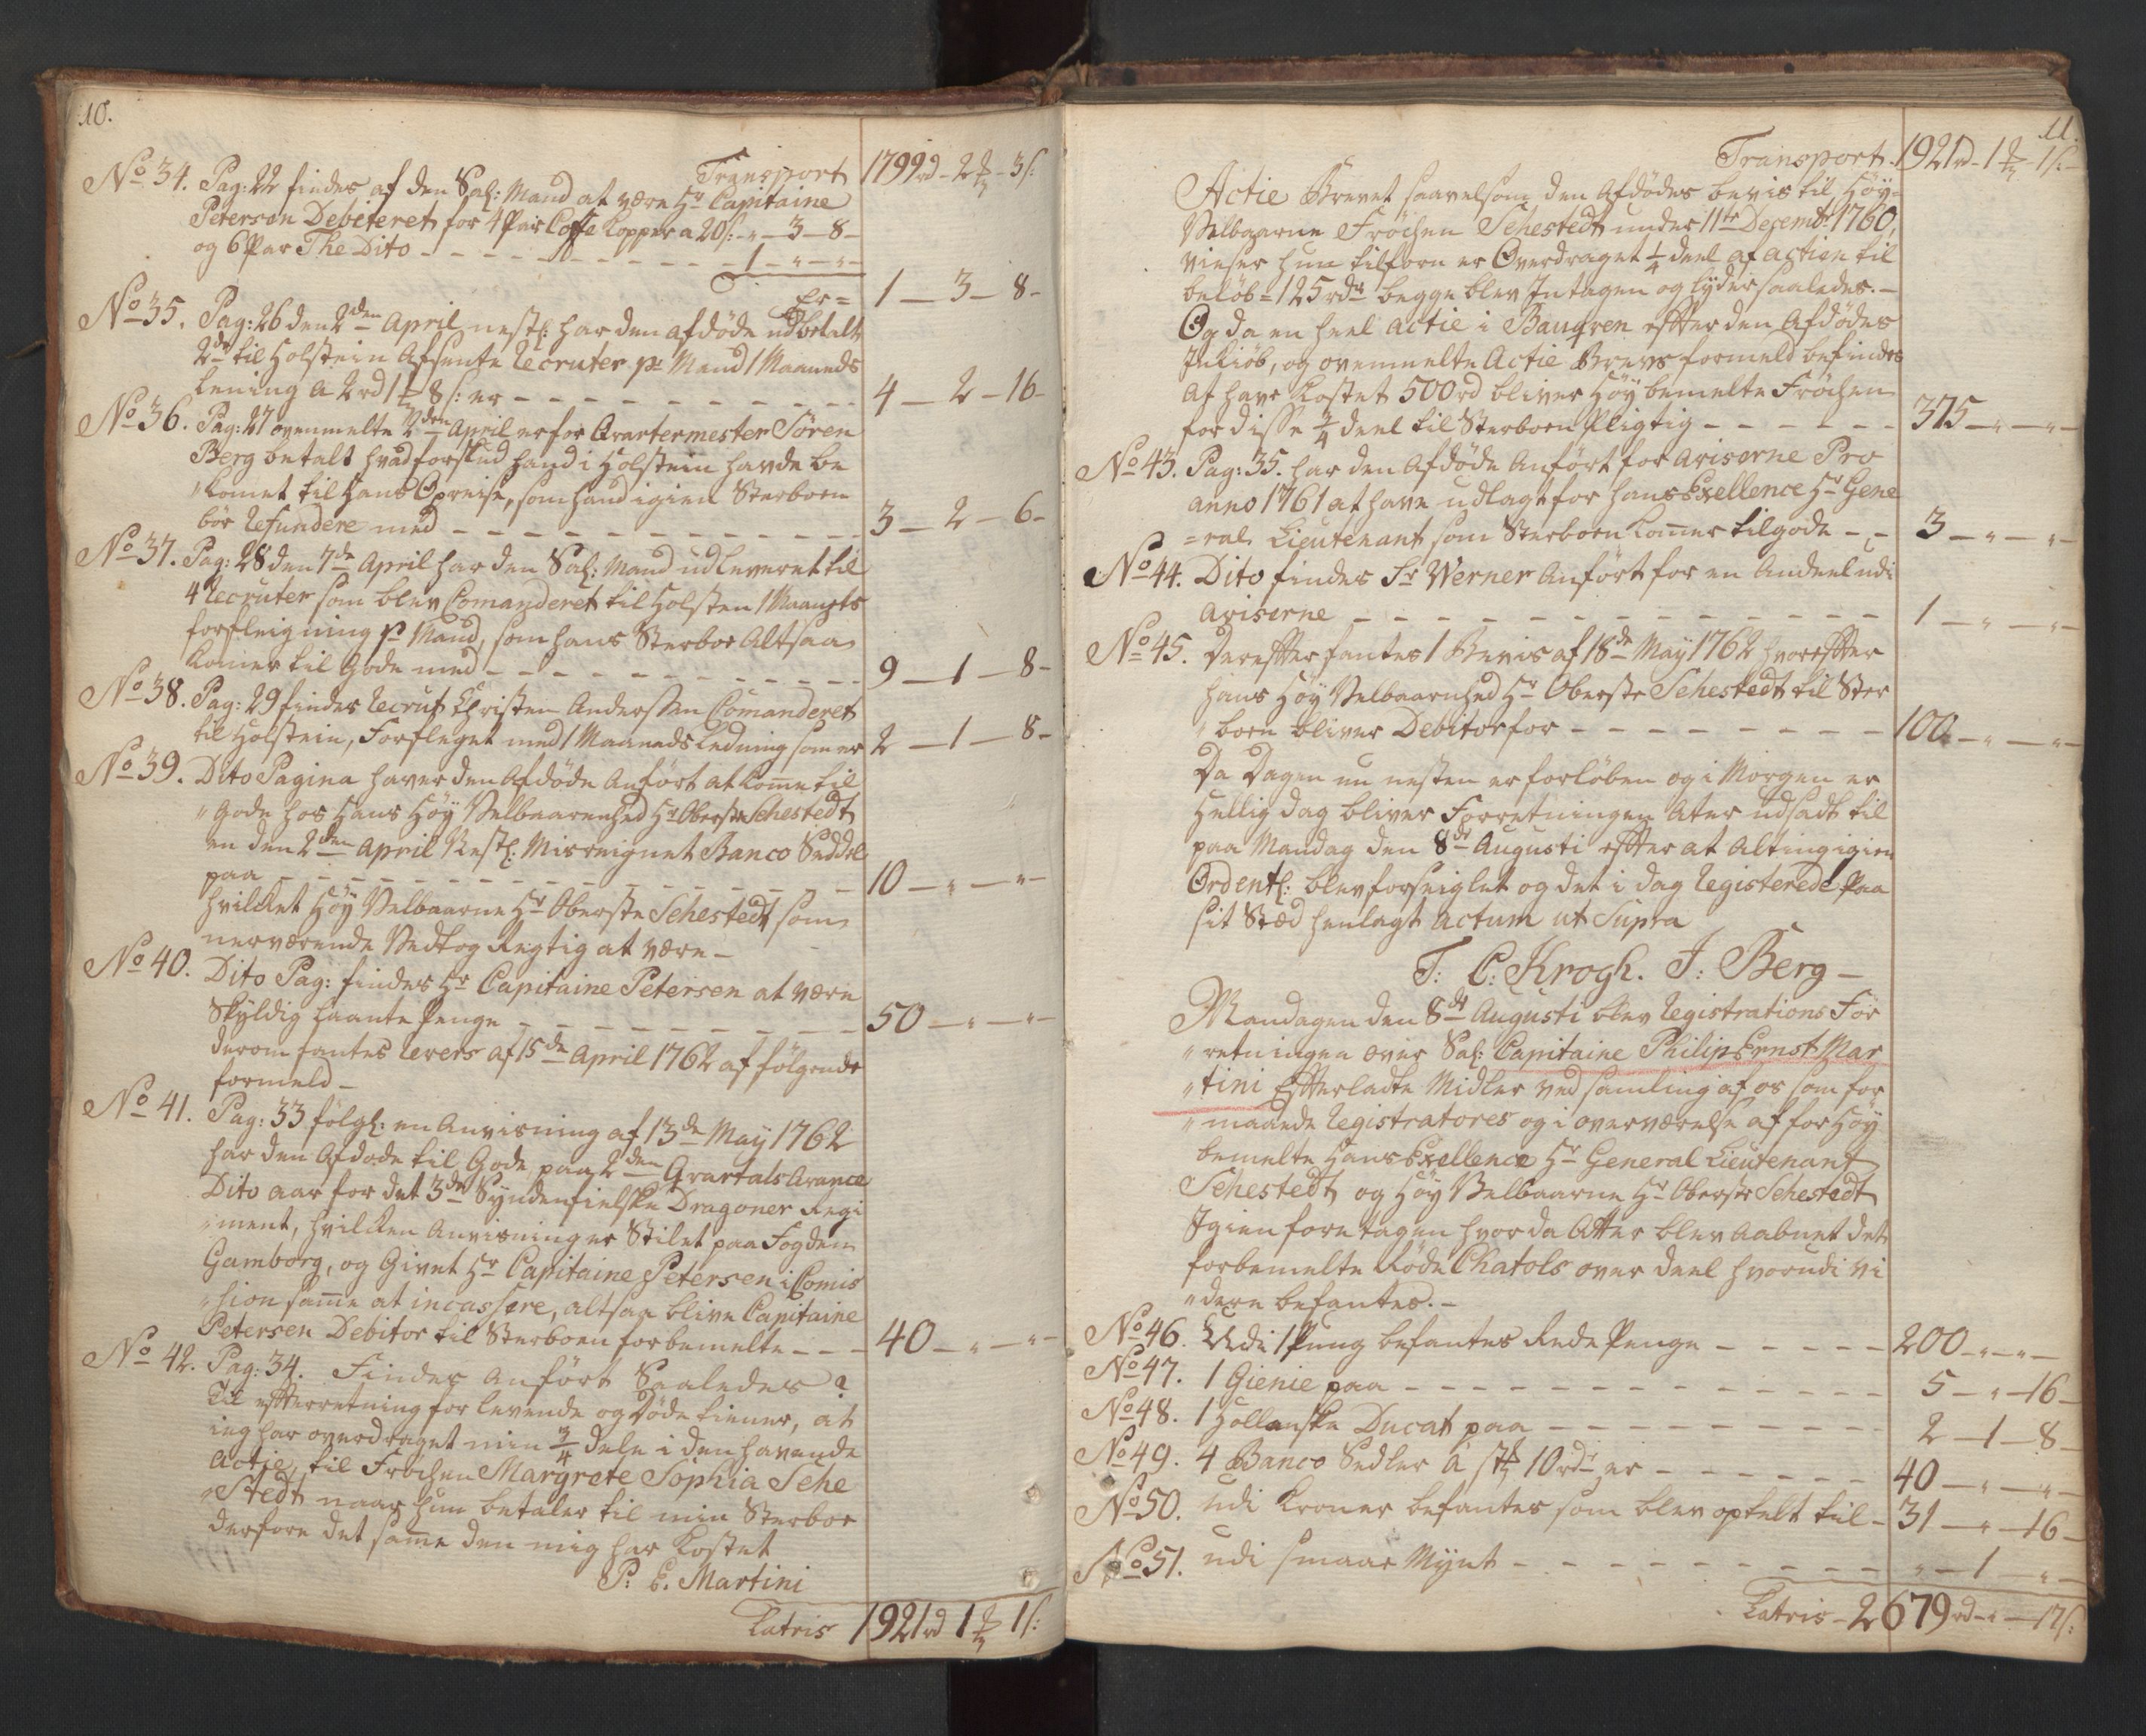 10.
Transport 1799rd - 2 - 3s:
No 34. Pag: 22 findes af den Sal: Mand at være Hr Capitaine
Petersen Debiteret for 4 Par Coffe Kopper a 20s: " - 3 - 8 -
og 6 Par The Dito - - - 1 - " - " -
er = 1 - 3 - 8 -
No 35. Pag: 26 den 2den April nestl: har den afdöde udbetalt
2de til Holstein Afsente Recruter pr Mand 1 Maaneds
Lening a 2rd 1 8s: er - - - 4 - 2 - 16 -
No 36. Pag: 27 ovenmelte 2den April er for Qvartermester Sören
Berg betalt hvad forskud hand i Holstein havde be
"komet til hans Opreise, som hand igien Sterboen
bör Refundere med - - - 3 - 2 - 6 -
No 37. Pag: 28 den 7de April har den Sal: Mand udleveret til
4 Recruter som blev Comanderet til Holsten 1 Maaneds
forfleigning pr Mand, som hans Sterboe Altsaa
komer til Gode med - - - 9 - 1 - 8 -
No 38. Pag: 29 findes Recrut Christen Anderssen Comanderet
til Holstein, Forfleget med 1 Maaneds Ledning som er 2 - 1 - 8 -
No 39. Dito Pagina haver den Afdöde Anfört at kome til
"Gode hos Hans Höy Velbaarenhed Hr Oberste Sehestedt
en den 2den April Nestl: Misreignet Banco Seddel
paa - - - 10 - " - " -
hvilket Höy Velbaarne Hr Oberste Sehestedt som
nerværende Vedtog Rigtig at være -
No 40. Dito Pag: findes Hr Capitaine Petersen at være
Skyldig Laante Penge - - - 50 - " - " -
derom fantes Revers af 15de April 1762 af fölgende
formeld -
No 41. Pag: 33 fölgl: en Anvisning af 13de May 1762
har den Afdøde til Gode paa 2den Qvartals Avance
Dito aar for det 3de Syndenfielske Dragoner Regi
"ment, hvilken Anvisning er Stilet paa Fogden
Gamborg, og Givet Hr Capitaine Petersen i Comis
"sion same at incassere, altsaa blive Capitaine
Petersen Debitor til Sterboen forbemelte - - - 40 - " - " -
No 42. Pag: 34. Findes Anfört Saaledes
Til efterretning for levende og Döde tiener, at
ieg har overdraget min 3/4 dele i den havende
Actie, til Fröchen Margrete Sophia Sehe
"stedt naar hun betaler til min Sterboe
derfore det same den mig har Kostet
P: E. Martini
Latris 1921rd 1 1s:
11.
Transport 1921rd - 1 - 1s:
Actie Brevet saavelsom den Afdödes bevis til Höy=
Velbaarne Fröchen Sehestedt under 11te Decembr: 1760,
vieser hun tilforn er Overdraget 1/4 deel af actien til
belöb = 125rdr begge blev Intagen og lyder saaledes. -
Og da en heel Actie i Bangren efter den Afdödes
Inkiöb, og ovenmelte Actie Brevs formeld befindes
At have kostet 500rd bliver Höy bemelte Fröchen
for disse 3/4 deel til Sterboen Pligtig - - - 375 - " - " -
No 43. Pag: 35. har den Afdöde Anfört for Aviserne Pro
anno 1761 at have udlagt for hans Exellence Hr Gene
=ral Lieutenant som Sterboen komer tilgode - - 3 - " - " -
No 44. Dito findes Sr Werner Anfört for en Andeel udi
Aviserne - - - 1 - " - " -
No 45. Derefter fantes 1 Bevis af 18de May 1762 hvorefter
hans Höy Velbaarnhed Hr Oberste Sehestedt til Ster
"boen bliver Debitor for - - - 100 - " - " -
Da Dagen nu nesten er forlöben og i Morgen er
Hellig dag bliver Forretningen Ater udsadt til
paa Mandag den 8de Augusti efter at Alting igien
Ordentl: blev forseiglet og det i dag Registerede paa
sit Stæd henlagt actum ut Supra
T: C: Krogh. J: Berg -
Mandagen den 8de Augusti blev Registrations For
"retningen over Sal: Capitaine Philip Ernst Mar
"tini Efterladte Midler ved samling af os som for
"maaende Registratores og i overværelse af for Höy
bemelte Hans Exellence Hr General Lieutenant
Sehestedt og Höy Velbaarne Hr Oberste Sehestedt
Igien foretagen hvor da Atter blev Aabnet det
forbemelte Röde Chatols over deel hvorudi vi
"dere befantes. -
No 46. Udi 1 Pung befantes Rede Penge - - - 200 - " - " -
No 47. 1 Gienie paa - - - 5 - " - 16 -
No 48. 1 Hollanske Ducat paa - - - 2 - 1 - 8 -
No 49. 4 Banco Sedler á stk 10rdr er - - - 40 - " - " -
No 50. udi Kroner befantes som blev optelt til - 31 - " - 16 -
No 51. udi smaae Mÿnt - - - " - 1 - " -
Latris - 2679rd - " - 17s: